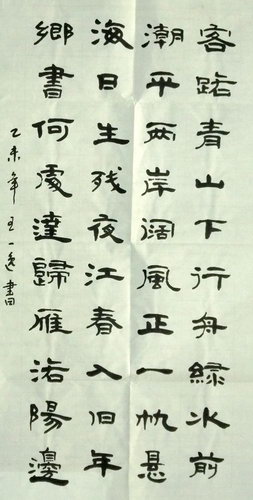 客路青山下行舟緑水前
潮平两岸阔風正一帆悬
海日生残夜江春入旧年
鄉書何處達歸雁洛陽邊
乙未年王一逸書